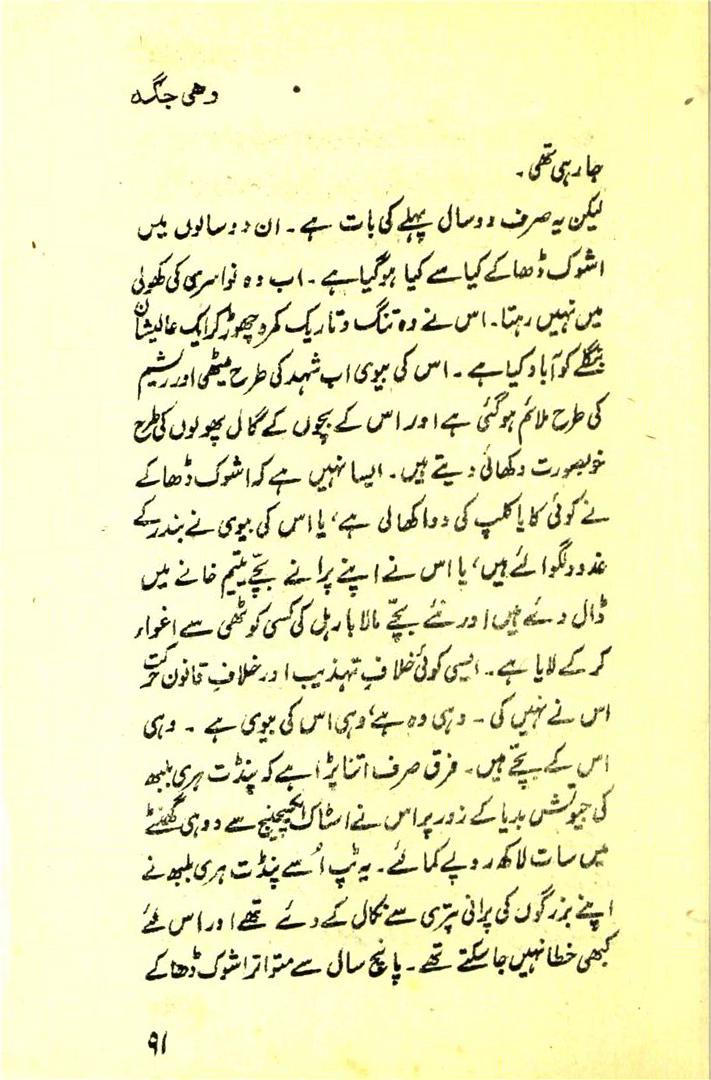 وہی جگہ
جا رہی تھی ۔
لیکن یہ صرف دو سال پہلے کی بات ہے ۔ ان دو سالوں میں
اشوک ڈھاکے کیا سے کیا ہوگیا ہے ۔ اب وہ نواسری کی کھولی
میں نہیں رہتا ۔ اس نے وہ تنگ و تاریک کمرہ چھوڑ کر ایک عالیشان
بنگلے کو آباد کیا ہے ۔ اس کی بیوی اب شہد کی طرح میٹھی اور ریشم
کی طرح ملائم ہوگئی ہے اور اس کے بچوں کے گال پھولوں کی طرح
خوبصورت دکھائی دیتے ہیں ۔ ایسا نہیں ہے کہ اشوک ڈھاکے
نے کوئی کایا کلپ کی دوا کھالی ہے، یا اس کی بیوی نے بندر کے
غدود لگوائے ہیں، یا اس نے اپنے پرانے بچّے یتیم خانے میں
ڈال دئے ہیں اور نئے بچّے مالا بار ہل کی کسی کوٹھی سے اغواء
کر کے لایا ہے ۔ ایسی کوئی خلافِ تہذیب اور خلافِ قانون حرکت
اس نے نہیں کی ۔ وہی وہ ہے، وہی اس کی بیوی ہے ۔ وہی
اس کے بچّے ہیں ۔ فرق صرف اتنا پڑا ہے کہ پنڈت ہری بلبھ
کی جیوتش بدیا کے زور پر اس نے اسٹاک ایکسچینج سے دو ہی گھنٹے
میں سات لاکھ روپے کمائے ۔ یہ ٹپ اُسے پنڈت ہری بلبھ نے
اپنے بزرگوں کی پرانی پتری سے نکال کے دئے تھے اور اس لئے
کبھی خطا نہیں جا سکتے تھے ۔ پانچ سال سے متواتر اشوک ڈھاکے
۹۱